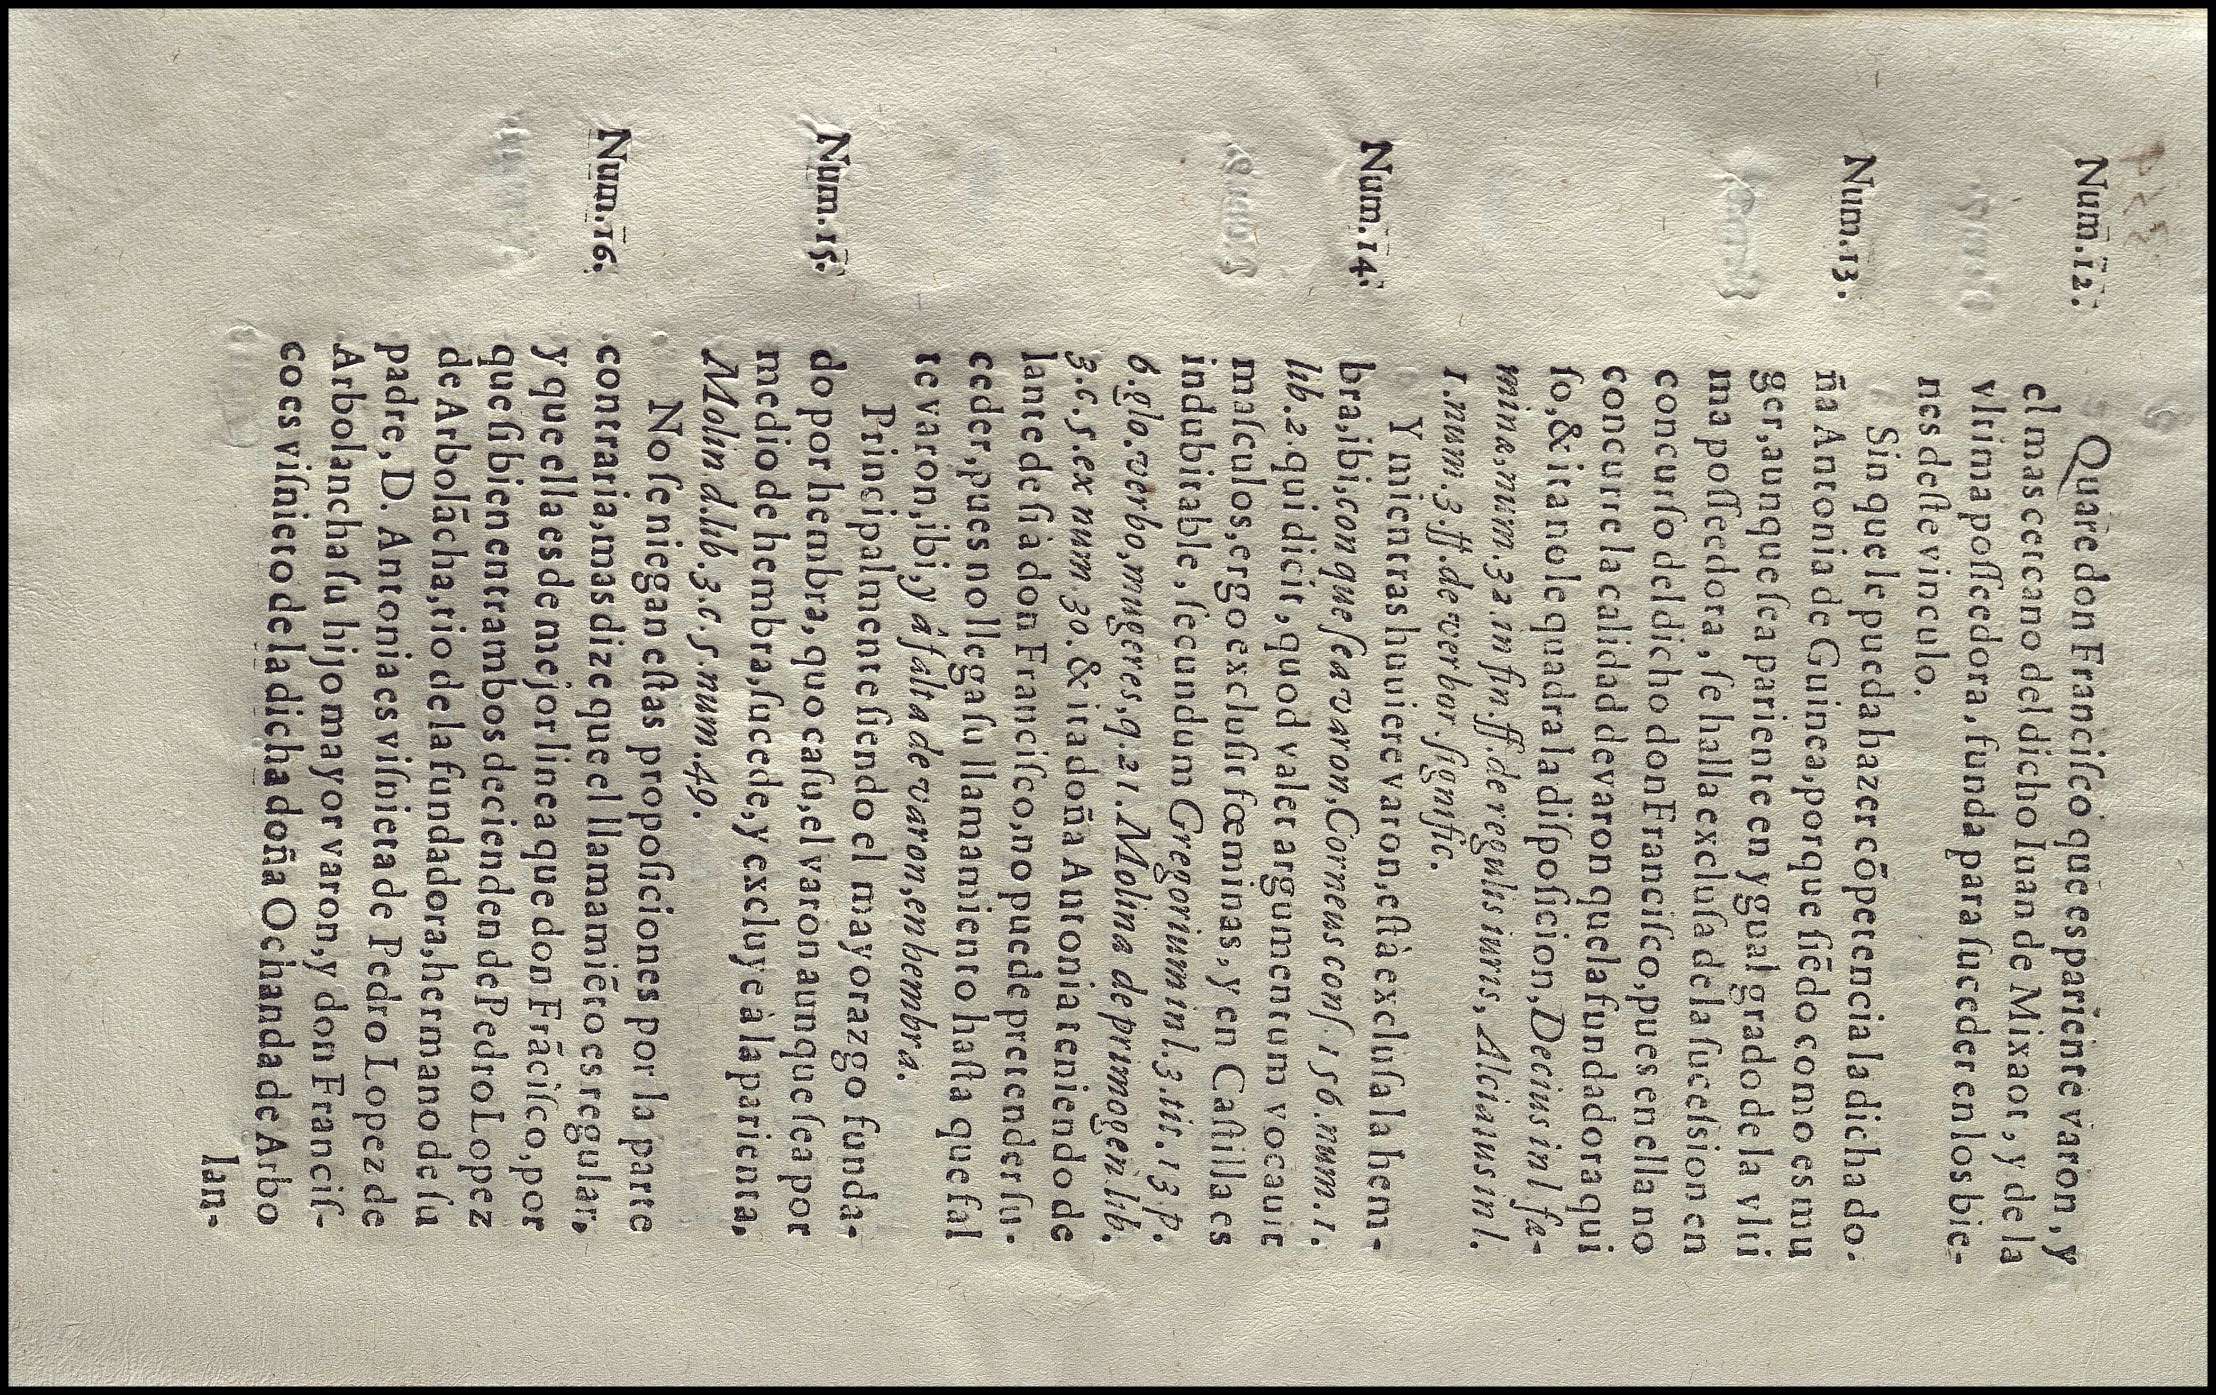 Num.12. Quare don Franciſco que es pariente varon, y
el mas cercano del dicho Iuan de Mixaor, y de la
vltima poſſeedora, funda para ſuceder en los bie-
nes deſte vinculo.
Num.13. Sin que le pueda hazer cõpetencia la dicha do-
ña Antonia de Guinea, porque ſiẽdo como es mu
ger, aunque ſea pariente en ygual grado de la vlti
ma poſſeedora, ſe halla excluſa de la ſuceſsion en
concurſo del dicho don Franciſco, pues en ella no
concurre la calidad de varon que la fundadora qui
ſo, & ita no le quadra la diſpoſicion, Decius in l. fa-
mina, num. 32. in fin. ff. de regulis iuris, Alciatus in l.
1. num. 3. ff. de verbor. ſignific.
Num.14. Y mientras huuiere varon, eſtà excluſa la hem-
bra, ibi, con que ſea varon, Corneus conſ. 156. num. 1.
lib. 2. qui dicit, quod valet argumentum vocauit
maſculos, ergo excluſit fœminas, y en Caſtilla es
indubitable, ſecundum Gregorium in l. 3. tit. 13 p.
6. glo. verbo, mugeres, q. 21. Molina de primogen. lib.
3. c. 5. ex num. 30. & ita doña Antonia teniendo de
lante de ſi a don Franciſco, no puede pretender ſu-
ceder, pues no llega ſu llamamiento haſta que fal
te varon, ibi, y à falta de varon, en hembra.
Num.15. Principalmente ſiendo el mayorazgo funda-
do por hembra, quo caſu, el varon aunque ſea por
medio de hembra, ſucede, y excluye à la parienta,
Molin d. lib. 3. c. 5. num. 49.
Num.16. No ſe niegan eſtas propoſiciones por la parte
contraria, mas dize que el llamamiẽto es regular,
y que ella es de mejor linea que don Frãciſco, por
que ſi bien entrambos decienden de Pedro Lopez
de Arbolãcha, tio de la fundadora, hermano de ſu
padre, D. Antonia es viſnieta de Pedro Lopez de
Arbolancha ſu hijo mayor varon, y don Franciſ-
co es viſnieto de la dicha doña Ochanda de Arbo
lan-